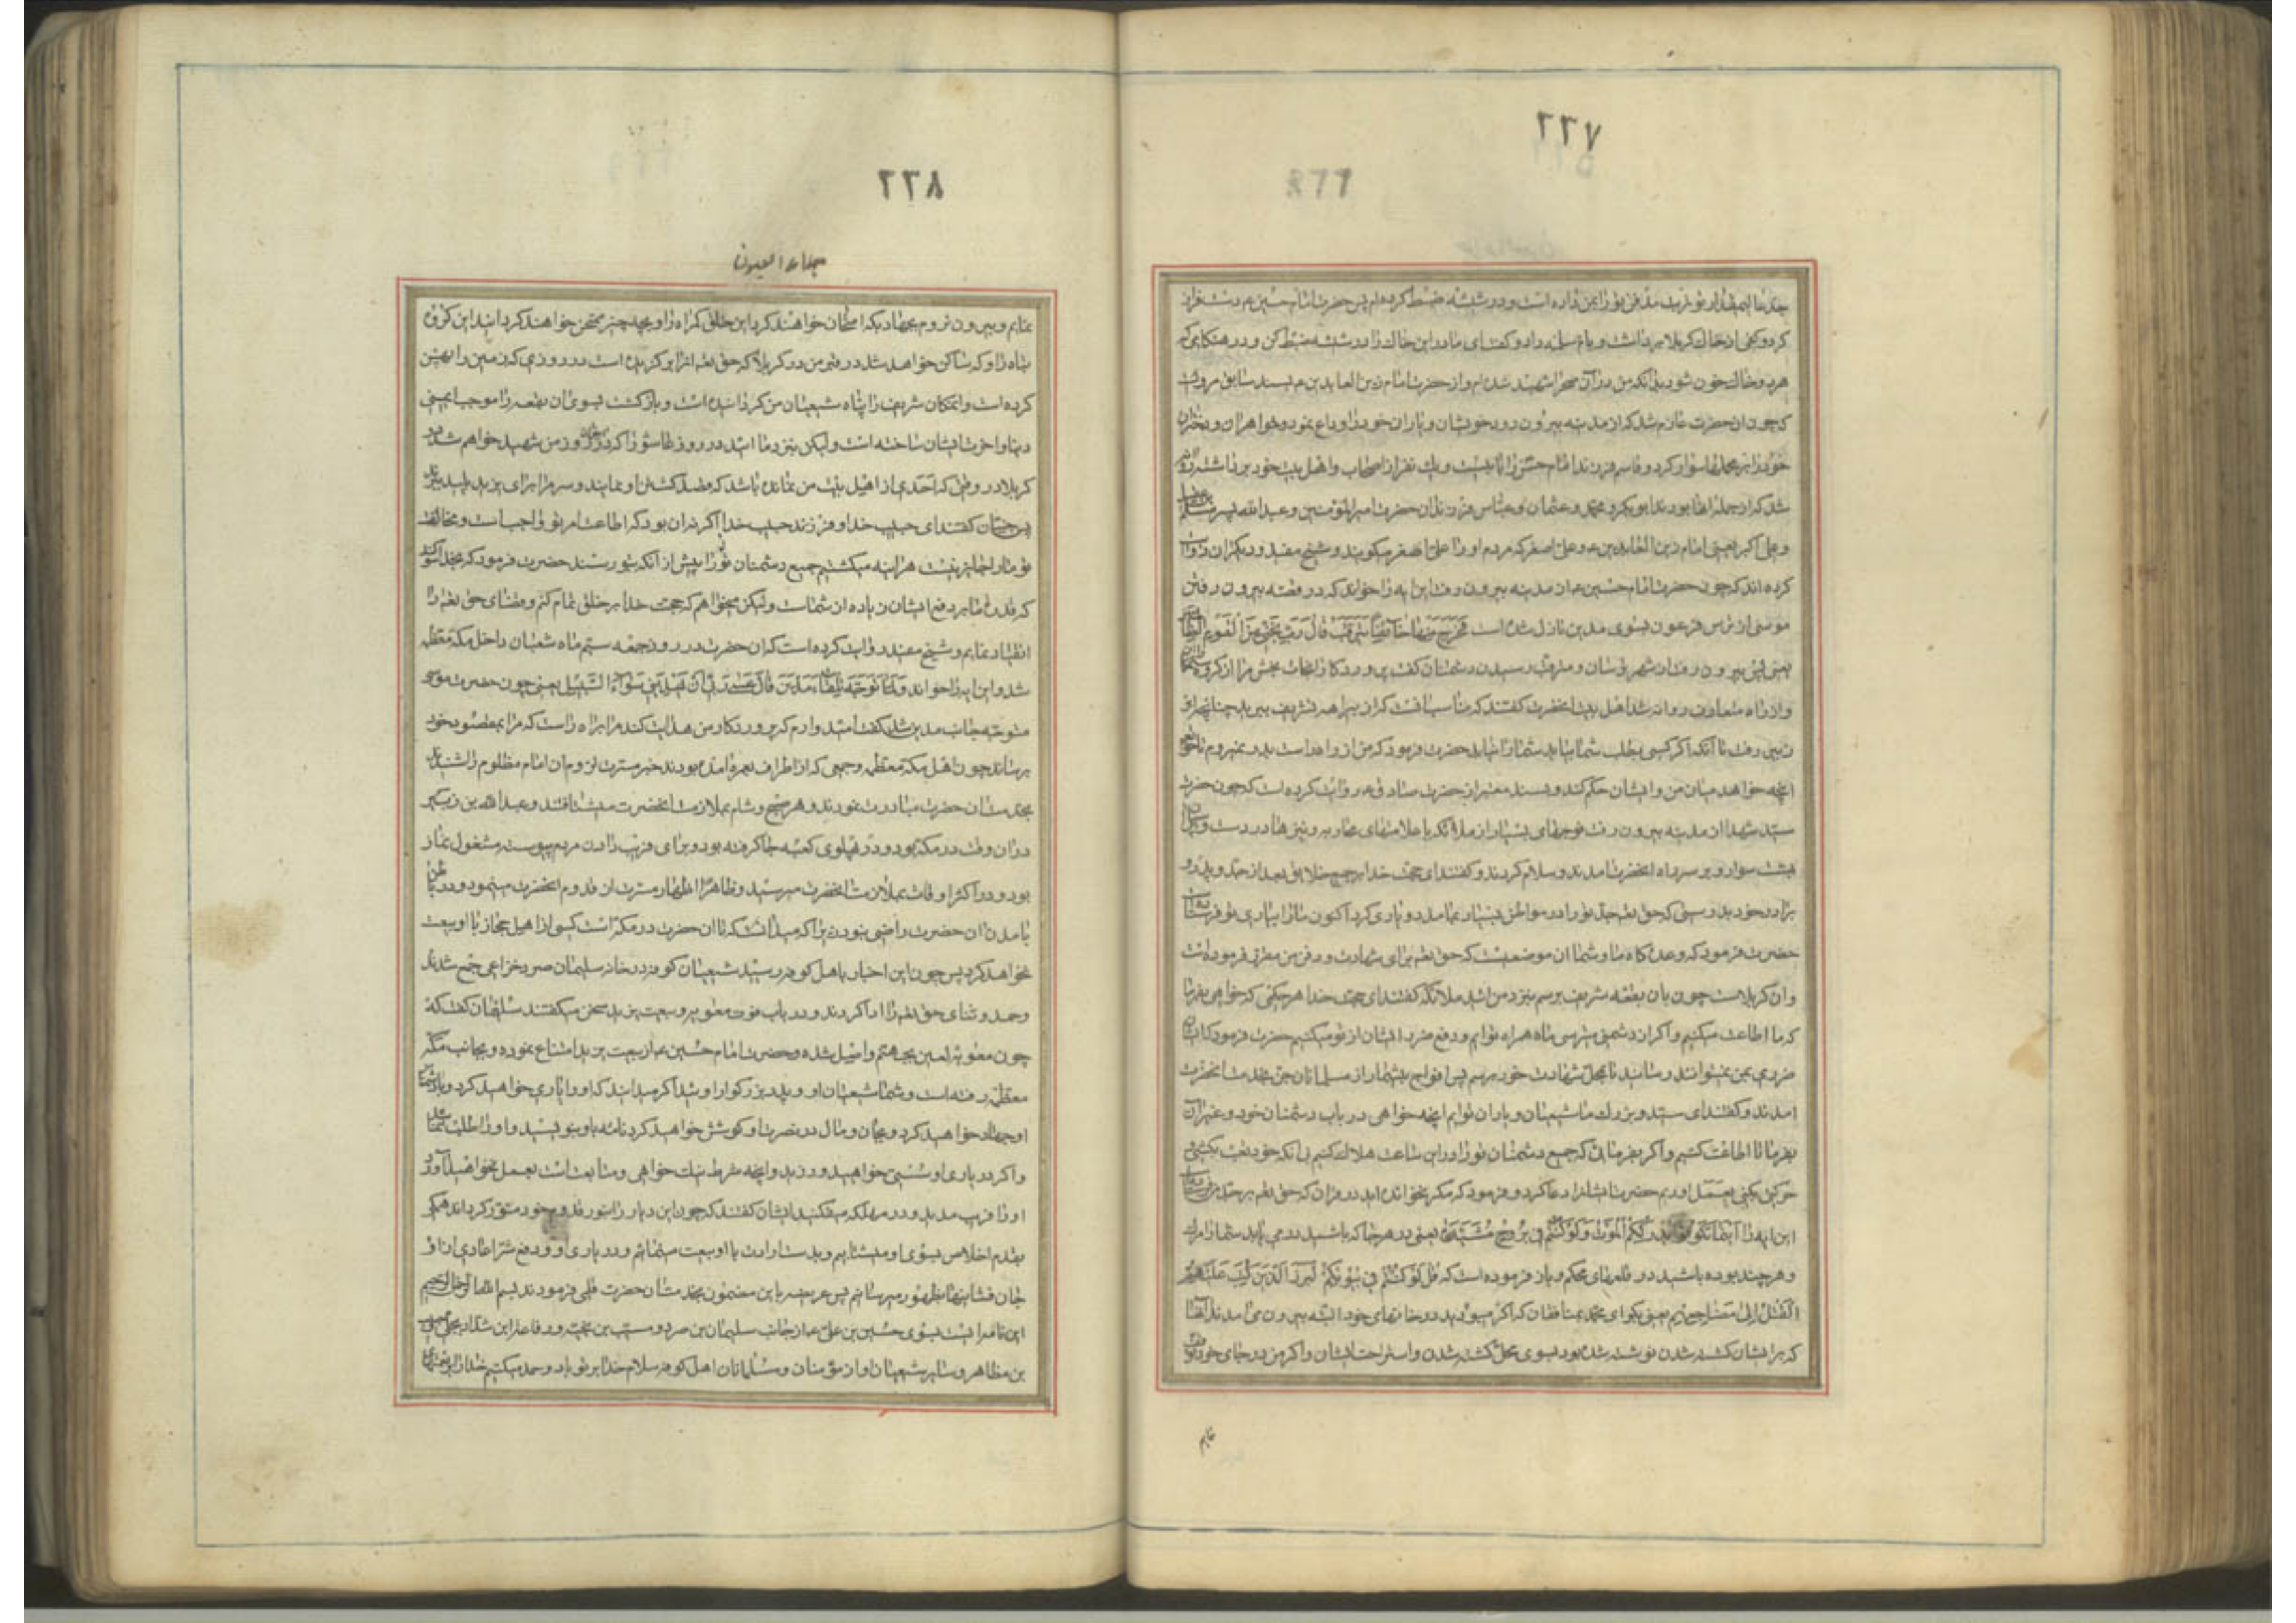 ٢٢٧
جدت بمن داده است و در شیشه ضبط کرده‌ام پس حضرت امام حسین ع دست فراز
کرد و کفی از خاک کربلا برداشت و بام سلمه داد و گفت ای مادر این خاک را در شیشه ضبط کن و در هنگامی که
هر دو خاک خون شود بدانکه من در آن صحرا شهید شده‌ام و از حضرت امام زین العابدین ع بسند سابق مرویست
که چون آن حضرت عازم شد که از مدینه بیرون رود خویشان و یاران خود را وداع نمود و خواهران و دختران
خود را بر محملها سوار کرد و قاسم فرزند امام حسن را با بیست و یک نفر از اصحاب و اهل بیت خود برداشته روانه
شد که از جمله آنها بودند ابوبکر و محمد و عثمان و عباس فرزندان حضرت امیر المؤمنین و عبد الله پسر مسلم
و علی اکبر یعنی امام زین العابدین ع و علی اصغر که مردم او را علی اصغر میگویند و شیخ مفید و دیگران روایت
کرده‌اند که چون حضرت امام حسین ع از مدینه بیرون رفت این ایه را خواند که در قصه بیرون رفتن
موسی از ترس فرعون بسوی مدین نازل شده است فَخَرَجَ مِنْهَا خَائِفًا یَتَرَقَّبُ قَالَ رَبِّ نَجِّنِی مِنَ الْقَوْمِ الظَّالِمِینَ
یعنی پس بیرون رفت از شهر ترسان و مترقب رسیدن دشمنان گفت پروردگارا نجات بخش مرا از گروه ستمکاران
و از راه متعارف روانه شد اهل بیت آنحضرت گفتند که مناسب آنست که از بیراهه تشریف ببرید چنانچه ابن
زبیر رفت تا آنکه اگر کسی بطلب شما بیاید شما را نیابد حضرت فرمود که من از راه راست بدر نمیروم تا حق تعالی
آنچه خواهد میان من و ایشان حکم کند و بسند معتبر از حضرت صادق ع روایت کرده است که چون حضرت
سید شهدا از مدینه بیرون رفت فوجهای بسیار از ملائکه با علامتهای محاربه و نیزها در دست و بر اسبان
بهشت سوار و بر سر راه آنحضرت آمدند و سلام کردند و گفتند ای حجت خدا بر جمیع خلایق بعد از جد و پدر و
برادر خود بدرستی که حق تعالی جد تو را در مواطن بسیار بما مدد و یاری کرد اکنون ما را بیاری تو فرستاده است
حضرت فرمود که وعده‌گاه ما و شما آن موضعیست که حق تعالی برای شهادت و دفن من مقرر فرموده است
و آن کربلاست چون بان بقعه شریف برسم بنزد من آئید ملائکه گفتند ای حجت خدا هر حکمی که خواهی بفرما
که ما اطاعت میکنیم و اگر از دشمنی بترسی ما همراه توایم و دفع ضرر ایشان از تو میکنیم حضرت فرمود که ایشان
ضرری بمن نمیتوانند رسانید تا بمحل شهادت خود برسم پس افواج بیشمار از مسلمانان جن بخدمت آنحضرت
آمدند و گفتند ای سید و بزرگ ما شیعیان و یاران توایم آنچه خواهی در باب دشمنان خود و غیر آن
بفرما تا اطاعت کنیم و اگر بفرمائی که جمیع دشمنان تو را در این ساعت هلاک کنیم بی آنکه خود تعب بکشی و
حرکتی بکنی بعمل آوریم حضرت ایشانرا دعا کرد و فرمود که مگر نخوانده‌اید در قرآن که حق تعالی بر جدم فرستاده
این ایه را أَیْنَمَا تَکُونُوا یُدْرِککُّمُ الْمَوْتُ وَلَوْ کُنْتُمْ فِی بُرُوجٍ مُشَیَّدَةٍ یعنی در هر جا که باشید در می‌یابد شما را مرگ
و هر چند بوده باشید در قلعهای محکم و باز فرموده است که قُلْ لَوْ کُنْتُمْ فِی بُیُوتِکُمْ لَبَرَزَ الَّذِینَ کُتِبَ عَلَیْهِمُ
الْقَتْلُ إِلَى مَضَاجِعِهِمْ یعنی بگو ای محمد بمنافقان که اگر میبودید در خانهای خود البته بیرون می‌آمدند آنها
که بر ایشان کشته شدن نوشته شده بود بسوی محل کشته شدن و استراحت ایشان و اگر من در جای خود توقف
نمایم
٢٢٨
جلاء العیون
نمایم و بیرون نروم بجهاد بکه امتحان خواهند کرد این خلق گمراه را و بچه چیز ممتحن خواهند گردانید این گروه
تباه را و که ساکن خواهد شد در قبر من در کربلا که حق تعالی آنرا برگزیده است در روزی که زمین را پهن
کرده است و آن مکان شریف را پناه شیعیان من گردانیده است و بازگشت بسوی آن بقعه را موجب ایمنی
دنیا و آخرت ایشان ساخته است ولیکن بنزد ما آئید در روز عاشورا که در آخر آن روز من شهید خواهم شد در
کربلا در وقتی که احدی از اهل بیت من نمانده باشد که قصد کشتن او نمایند و سر مرا برای یزید پلید ببرند
پس جنیان گفتند ای حبیب خدا و فرزند حبیب خدا اگر نه آن بود که اطاعت امر تو واجب است و مخالفت
تو ما را جایز نیست هراینه میکشتیم جمیع دشمنان تو را پیش از آنکه بتو رسند حضرت فرمود که بخدا سوگند
که قدرت ما بر دفع ایشان زیاده از شماست ولیکن میخواهم که حجت خدا بر خلق تمام کنم و قضای حق تعالی را
انقیاد نمایم و شیخ مفید روایت کرده است که آن حضرت در روز جمعه سیّم ماه شعبان داخل مکه معظمه
شد و این ایه را خواند وَلَمَّا تَوَجَّهَ تِلْقَاءَ مَدْیَنَ قَالَ عَسَى رَبِّی أَنْ یَهْدِیَنِی سَوَاءَ السَّبِیلِ یعنی چون حضرت موسی
متوجه جانب مدین شد گفت امید دارم که پروردگار من هدایت کند مرا براه راست که مرا بمقصود خود
برساند چون اهل مکه معظمه و جمعی که از اطراف بعمره آمده بودند خبر مسرت لزوم آن امام مظلوم را شنیدند
بخدمت آن حضرت مبادرت نمودند و هر صبح و شام بملازمت آنحضرت میشتافتند و عبد الله بن زبیر
در آن وقت در مکه بود و در پهلوی کعبه جا گرفته بود و برای فریب دادن مردم پیوسته مشغول نماز
بود و در اکثر اوقات بملازمت آنحضرت میرسید و ظاهرا اظهار مسرت از قدوم آنحضرت مینمود و در باطن
بآمدن آن حضرت راضی نبود زیرا که میدانست که تا آن حضرت در مکه است کسی از اهل حجاز با او بیعت
نخواهد کرد پس چون این اخبار باهل کوفه رسید شیعیان کوفه در خانه سلیمان صرد خزاعی جمع شدند
و حمد و ثنای حق تعالی را ادا کردند و در باب فوت معویه و بیعت یزید سخن میگفتند سلیمان گفت که
چون معویه لعین بجهنم واصل شده و حضرت امام حسین ع از بیعت یزید امتناع نموده و بجانب مکه
معظمه رفته است و شما شیعیان او و پدر بزرگوار اوئید اگر میدانید که او را یاری خواهید کرد و با دشمنان
او جهاد خواهید کرد و بجان و مال در نصرت او کوشش خواهید کرد نامه باو بنویسید و او را طلب نمائید
و اگر در یاری او سستی خواهید ورزید و آنچه شرط نیک خواهی و متابعت است بعمل نخواهید آورد
او را فریب مدهید و در مهلکه میفکنید ایشان گفتند که چون این دیار را بنور قدوم خود منور گرداند همگی
بقدم اخلاص بسوی او میشتابیم و بدست ارادت با او بیعت مینمائیم و در یاری او و دفع شر اعادی از او
جان فشانیها بظهور میرسانیم پس عریضه باین مضمون بخدمت آن حضرت قلمی فرمودند بسم الله الرحمن الرحیم
این نامه ایست بسوی حسین بن علی ع از جانب سلیمان بن صرد و مسیب بن نجبه و رفاعه ابن شداد بجلی و حبیب
بن مظاهر و سایر شیعیان او از مؤمنان و مسلمانان اهل کوفه سلام خدا بر تو باد و حمد میکنیم خدا را